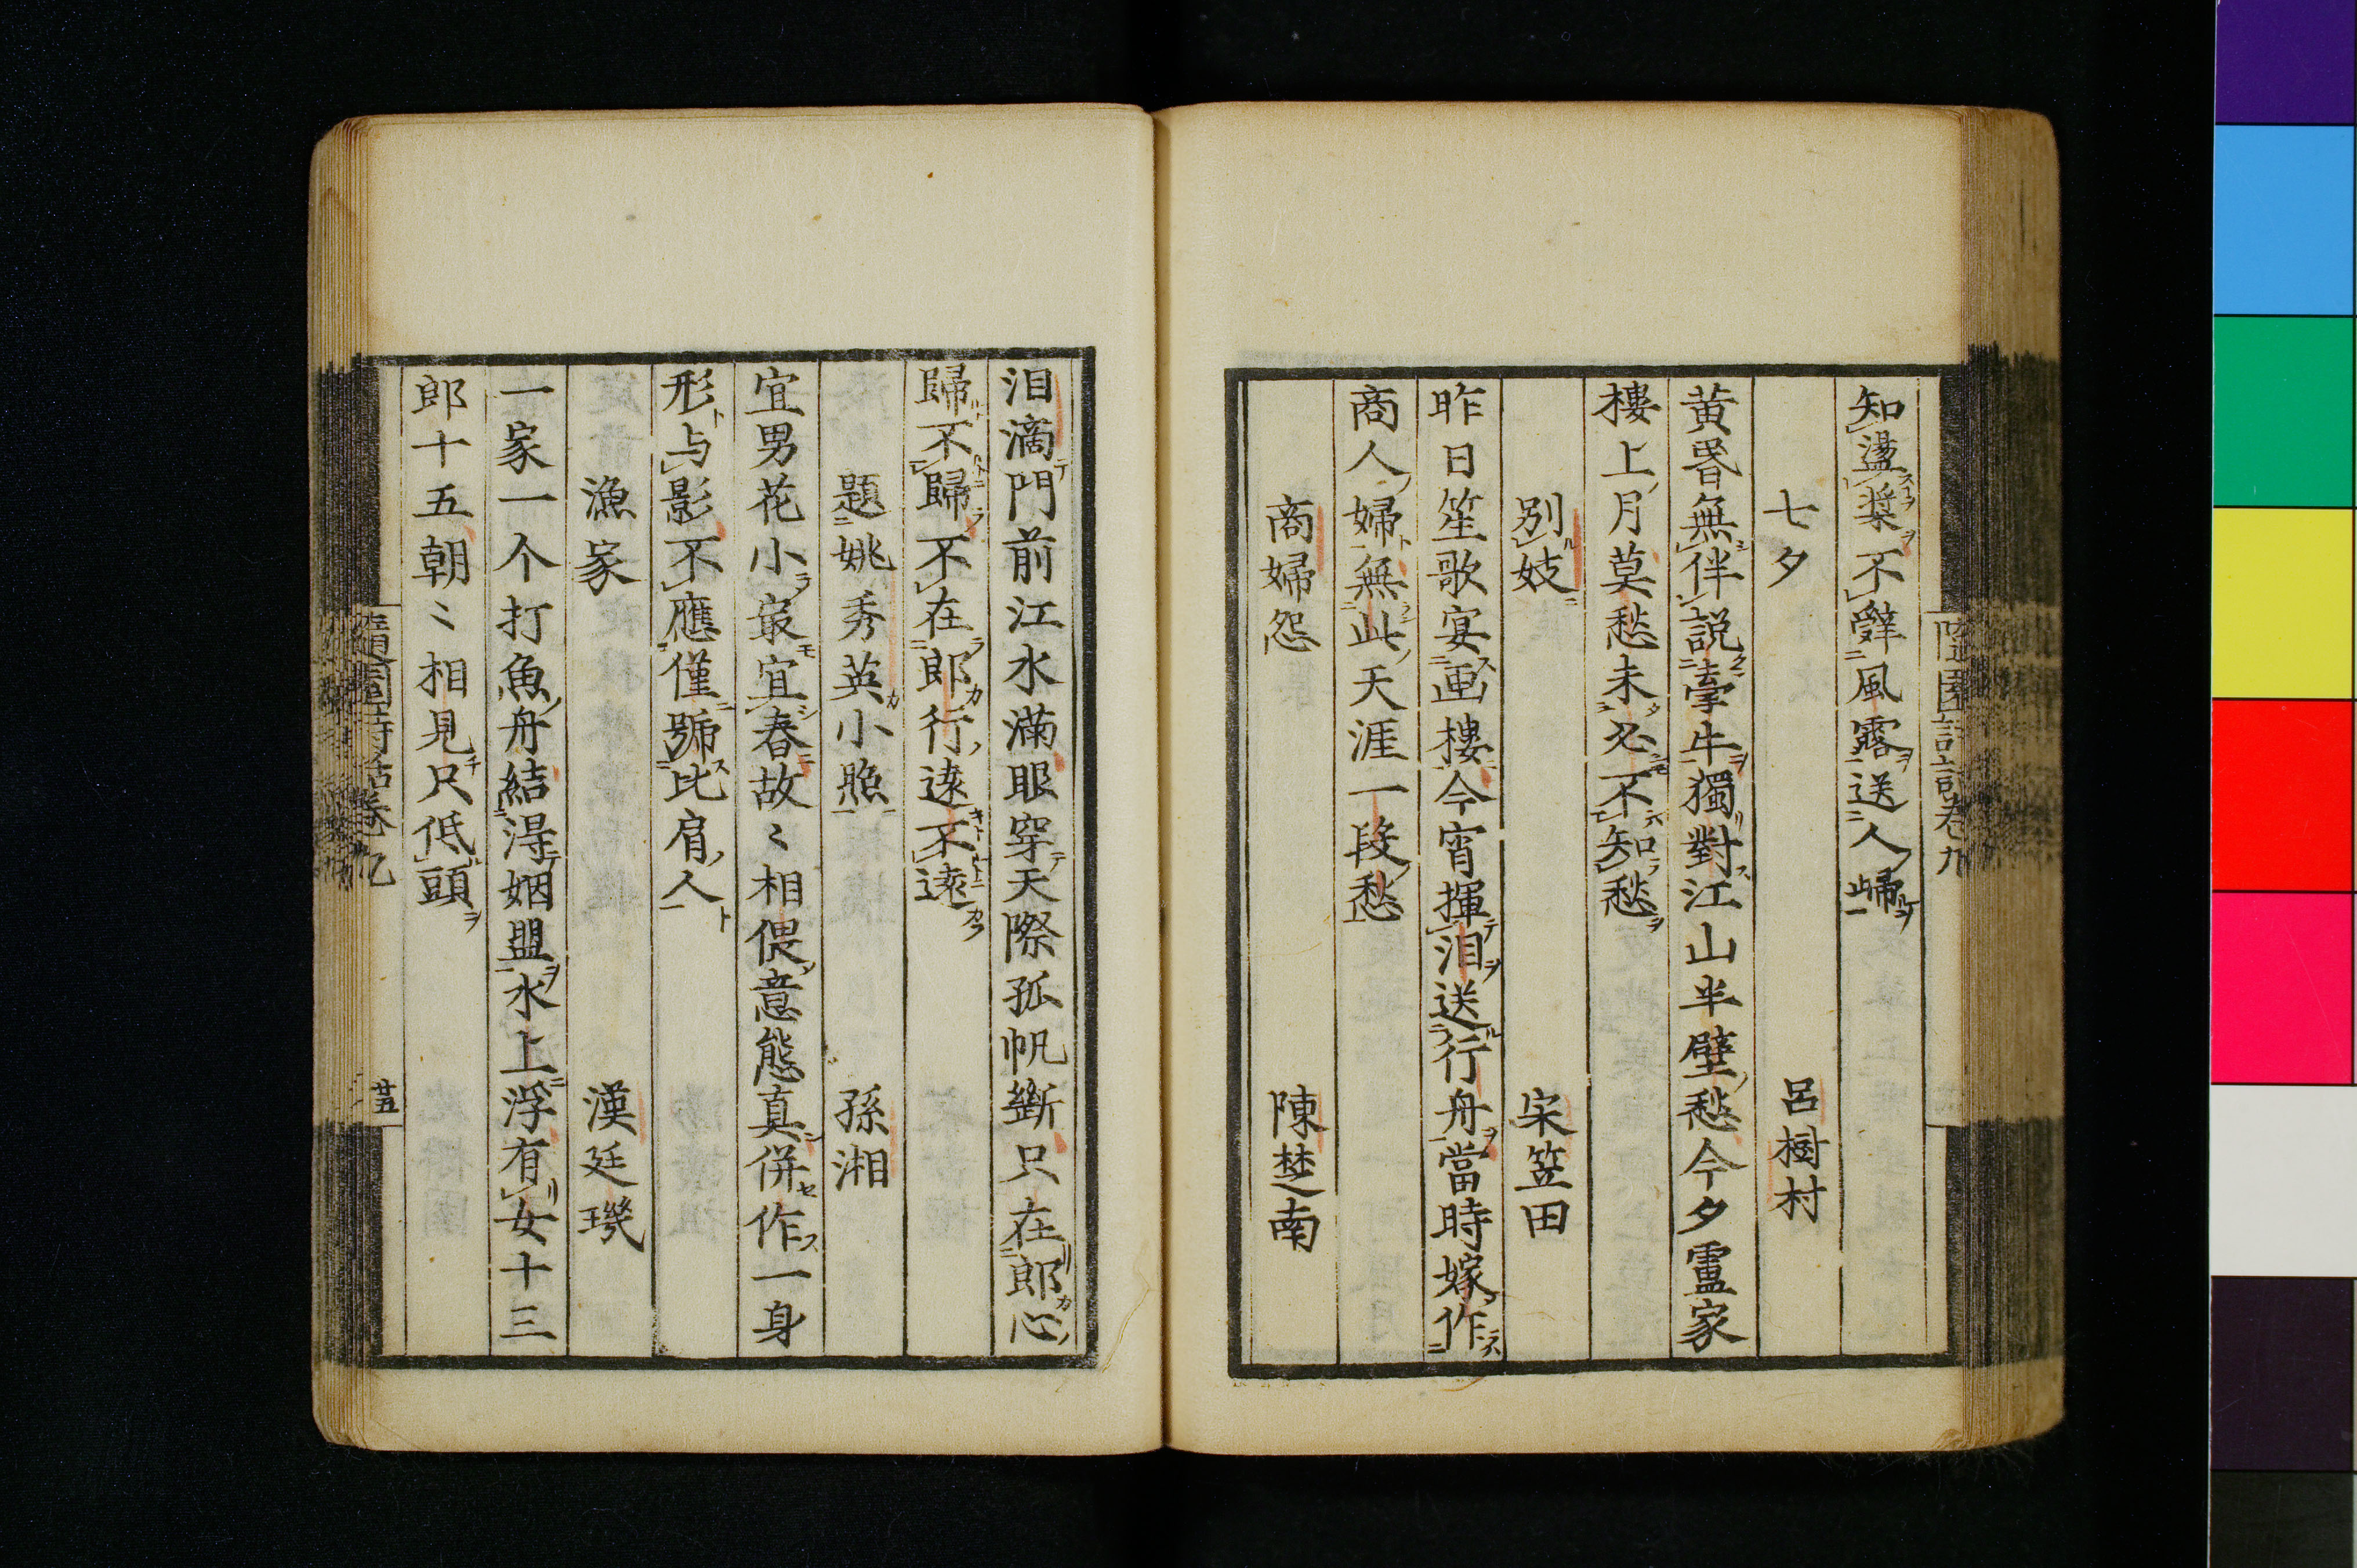 知盪槳不辭風露送人歸
七夕 呂樹村
黃昏無伴説牽牛獨對江山半壁愁今夕盧家
樓上月莫愁未必不知愁
別妓 宋笠田
昨日笙歌宴画樓今宵揮泪送行舟當時嫁作
商人婦無此天涯一段愁
商婦怨 陳楚南
泪滴門前江水滿眼穿天際孤帆斷只在郎心
歸不歸不在郎行遠不遠
題姚秀英小照 孫湘
宜男花小最宜春故〻相偎意態真併作一身
形与影不應僅號比肩人
漁家 漢廷璣
一家一个打魚舟結得姻盟水上浮有女十三
郎十五朝〻相見尺低頭
隨園詩話卷九
廿五